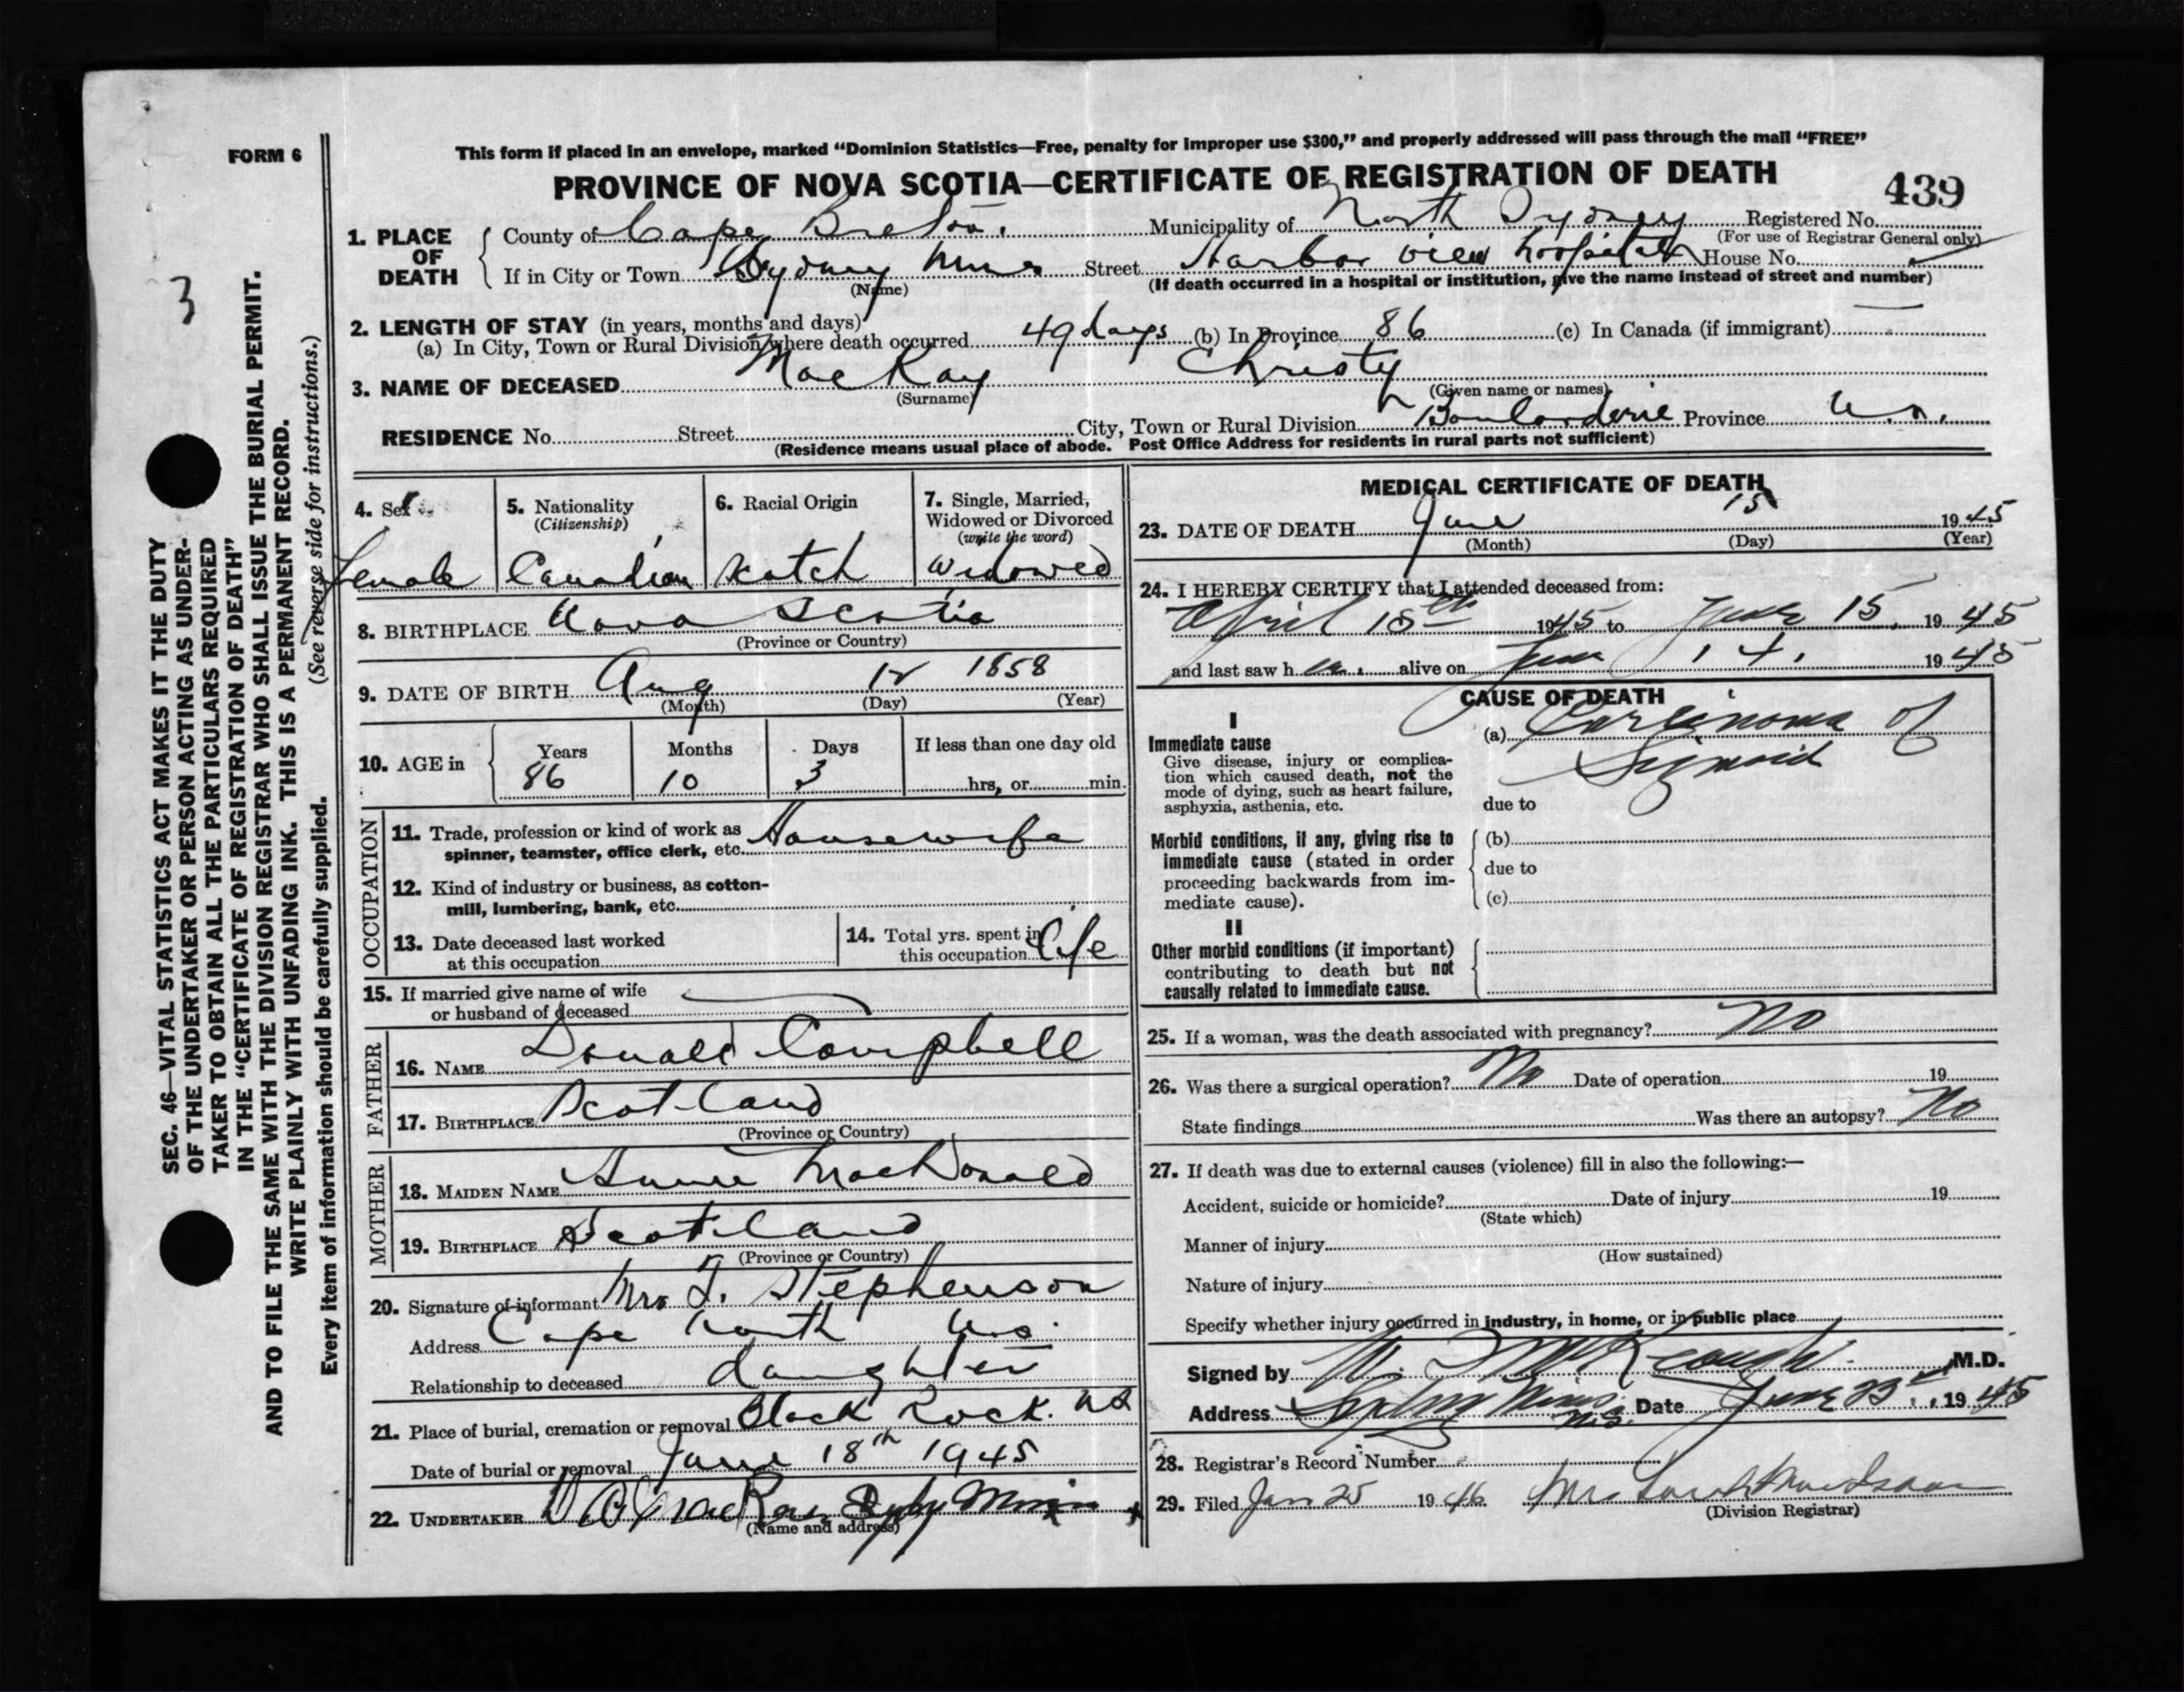 FORM 6
This form if placed in an envelope, marked “Dominion Statistics—Free, penalty for improper use $300,” and properly addressed will pass through the mail “FREE”
PROVINCE OF NOVA SCOTIA—CERTIFICATE OF REGISTRATION OF DEATH
439
1. PLACE OF DEATH
County of Cape Breton. Municipality of North Sydney Registered No.
(For use of Registrar General only)
If in City or Town Sydney Mines Street Harbor View hospital House No.
(Name) (If death occurred in a hospital or institution, give the name instead of street and number)
2. LENGTH OF STAY (in years, months and days)
(a) In City, Town or Rural Division where death occurred 49 days (b) In Province 86 (c) In Canada (if immigrant) —
3. NAME OF DECEASED MacKay Christy
(Surname) (Given name or names)
RESIDENCE No. Street City, Town or Rural Division Boularderie Province N.S.
(Residence means usual place of abode. Post Office Address for residents in rural parts not sufficient)
4. Sex
Female
5. Nationality
(Citizenship)
Canadian
6. Racial Origin
Scotch
7. Single, Married,
Widowed or Divorced
(write the word)
Widowed
8. BIRTHPLACE Nova Scotia
(Province or Country)
9. DATE OF BIRTH Aug 12 1858
(Month) (Day) (Year)
10. AGE in
Years Months Days If less than one day old
86 10 3 hrs, or min.
OCCUPATION
11. Trade, profession or kind of work as
spinner, teamster, office clerk, etc. Housewife
12. Kind of industry or business, as cotton-
mill, lumbering, bank, etc.
13. Date deceased last worked
at this occupation
14. Total yrs. spent in
this occupation Life
15. If married give name of wife
or husband of deceased
FATHER
16. NAME Donald Campbell
17. BIRTHPLACE Scotland
(Province or Country)
MOTHER
18. MAIDEN NAME Annie MacDonald
19. BIRTHPLACE Scotland
(Province or Country)
20. Signature of informant Mrs J. Stephenson
Address Cape North N.S.
Relationship to deceased daughter
21. Place of burial, cremation or removal Black Rock. NS
Date of burial or removal June 18th 1945
22. UNDERTAKER
(Name and address)
MEDICAL CERTIFICATE OF DEATH
23. DATE OF DEATH June 15 1945
(Month) (Day) (Year)
24. I HEREBY CERTIFY that I attended deceased from:
April 18th 1945 to June 15. 1945
and last saw h er. alive on June 14. 1945
CAUSE OF DEATH
I
Immediate cause
Give disease, injury or complica-
tion which caused death, not the
mode of dying, such as heart failure,
asphyxia, asthenia, etc.
(a) Carcinoma of
Sigmoid
due to
Morbid conditions, if any, giving rise to
immediate cause (stated in order
proceeding backwards from im-
mediate cause).
(b)
due to
(c)
II
Other morbid conditions (if important)
contributing to death but not
causally related to immediate cause.
25. If a woman, was the death associated with pregnancy? No
26. Was there a surgical operation? No Date of operation 19
State findings Was there an autopsy? No
27. If death was due to external causes (violence) fill in also the following:—
Accident, suicide or homicide? Date of injury 19
(State which)
Manner of injury
(How sustained)
Nature of injury
Specify whether injury occurred in industry, in home, or in public place
Signed by M.D.
Address Sydney Mines N.S. Date June 23rd, 1945
28. Registrar's Record Number
29. Filed Jan 25 1946 Mrs
(Division Registrar)
3
SEC. 46—VITAL STATISTICS ACT MAKES IT THE DUTY
OF THE UNDERTAKER OR PERSON ACTING AS UNDER-
TAKER TO OBTAIN ALL THE PARTICULARS REQUIRED
IN THE “CERTIFICATE OF REGISTRATION OF DEATH”
AND TO FILE THE SAME WITH THE DIVISION REGISTRAR WHO SHALL ISSUE THE BURIAL PERMIT.
WRITE PLAINLY WITH UNFADING INK. THIS IS A PERMANENT RECORD.
Every item of information should be carefully supplied. (See reverse side for instructions.)